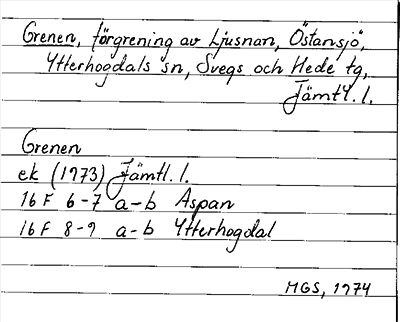 Grenen, förgrening av Ljusnan, Östansjö,
Ytterhogdals sn, Svegs och Hede tg,
Jämtl. l.
Grenen
ek (1973) Jämtl. l.
16 F 6-7 a-b Aspan
16 F 8-9 a-b Ytterhogdal
MGS, 1974